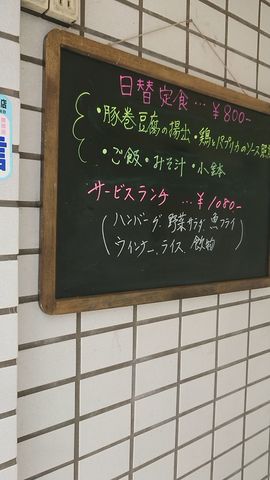 日替定食…¥800-
・豚巻豆腐の揚出・鶏とパプリカのソース
・ご飯・みそ汁・小鉢
サービスランチ …¥1080-
(ハンバーグ.野菜サラダ.魚フライ
ウィンナー.ライス.飲物)
店